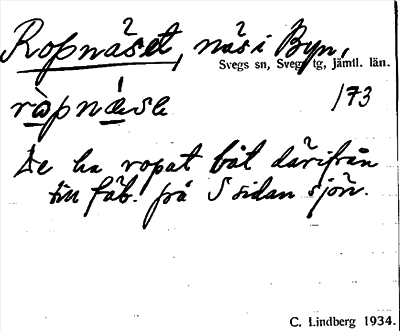 Ropnäset, näs i Byn,
Svegs sn, Svegs tg, Jämtl. län.
ròpnæ̀sle 173
De ha ropat båt därifrån
till fäb. på S sidan sjön.
C. Lindberg 1934.